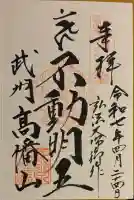 奉拝
令和七年四月二十四日
弘法大師御作
不動明王
武州
高幡山